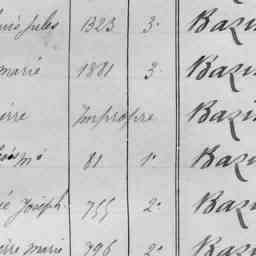 Jules 1323 3. Bazi
marie 1881 3. Bazi
Impropre Bazi
81 1. Bazi
Joseph. 755 2. Bazi
marie 796 2. Bazi